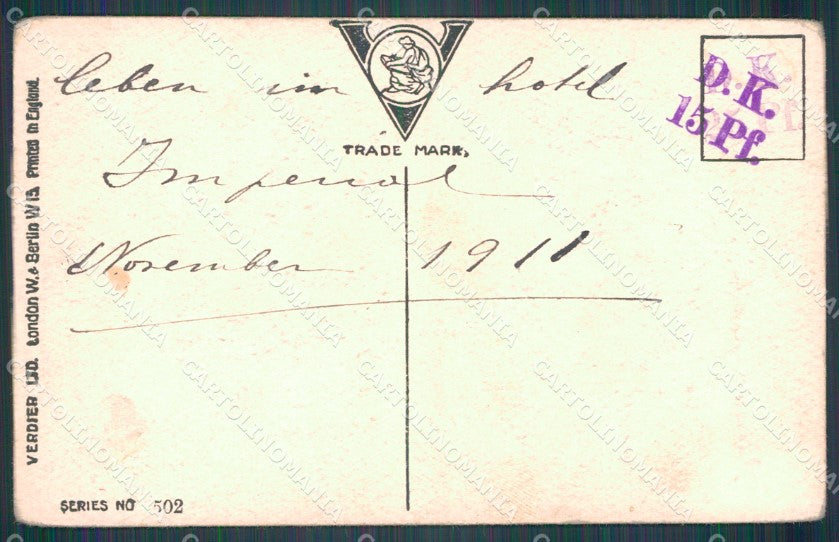 leben im hotel
Imperial
November 1911
TRADE MARK,
D. K.
15 Pf.
VERDIER LTD. London W. & Berlin W 15 Printed in England.
SERIES NO 502
CARTOLINOMANIA